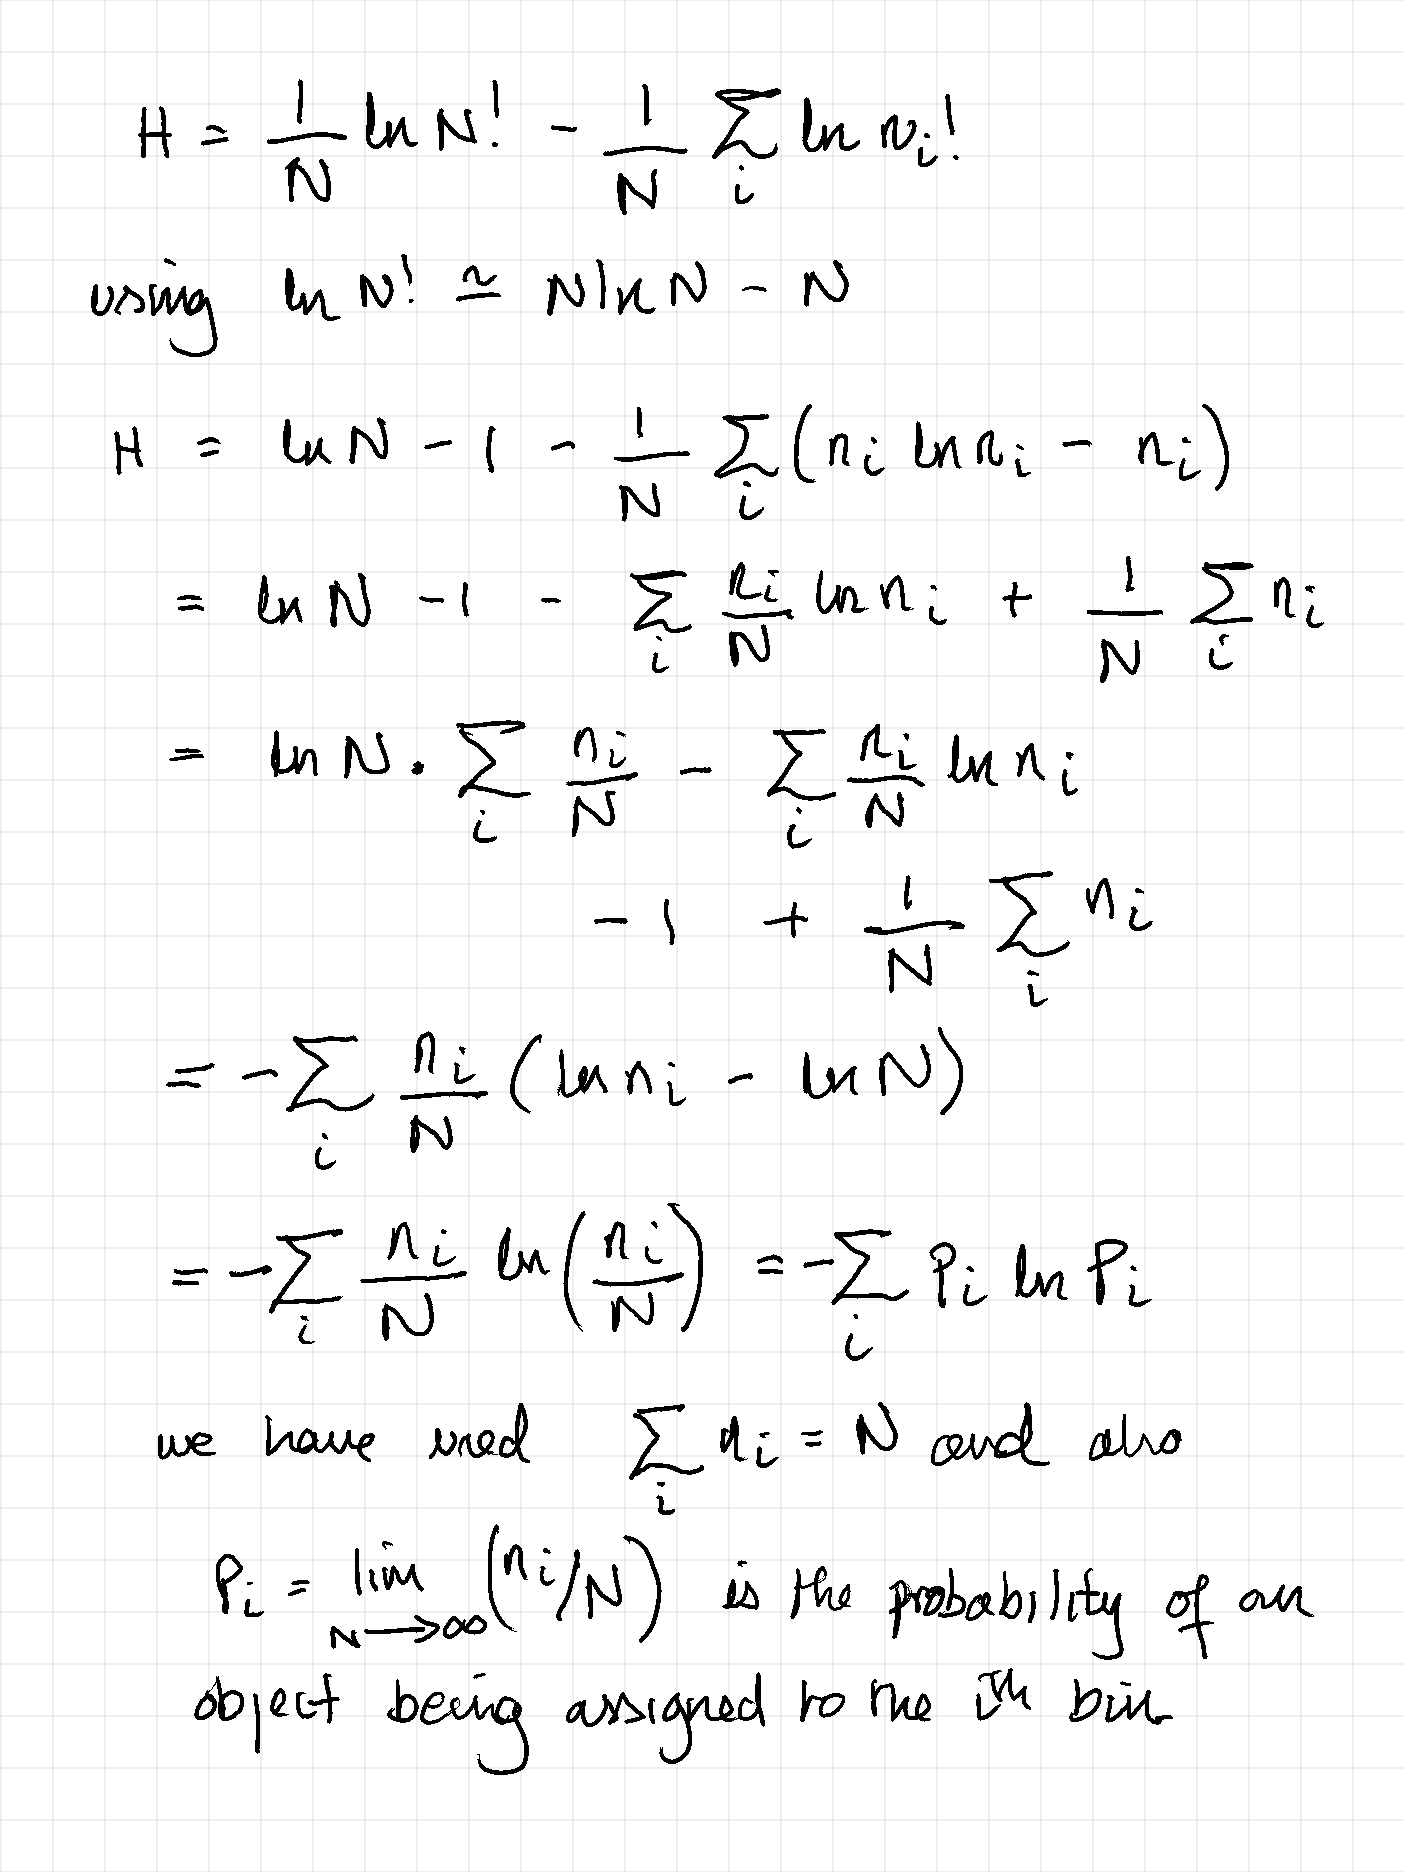 H = \frac{1}{N} ln N! - \frac{1}{N} \sum_i ln n_i!
using ln N! ≃ N ln N - N
H = ln N - 1 - \frac{1}{N} \sum_i (n_i ln n_i - n_i)
= ln N - 1 - \sum_i \frac{n_i}{N} ln n_i + \frac{1}{N} \sum_i n_i
= ln N . \sum_i \frac{n_i}{N} - \sum_i \frac{n_i}{N} ln n_i
- 1 + \frac{1}{N} \sum_i n_i
= - \sum_i \frac{n_i}{N} (ln n_i - ln N)
= - \sum_i \frac{n_i}{N} ln (\frac{n_i}{N}) = - \sum_i P_i ln P_i
we have used \sum_i n_i = N and also
P_i = lim_{N→∞} (n_i/N) is the probability of an
object being assigned to the i^{th} bin.